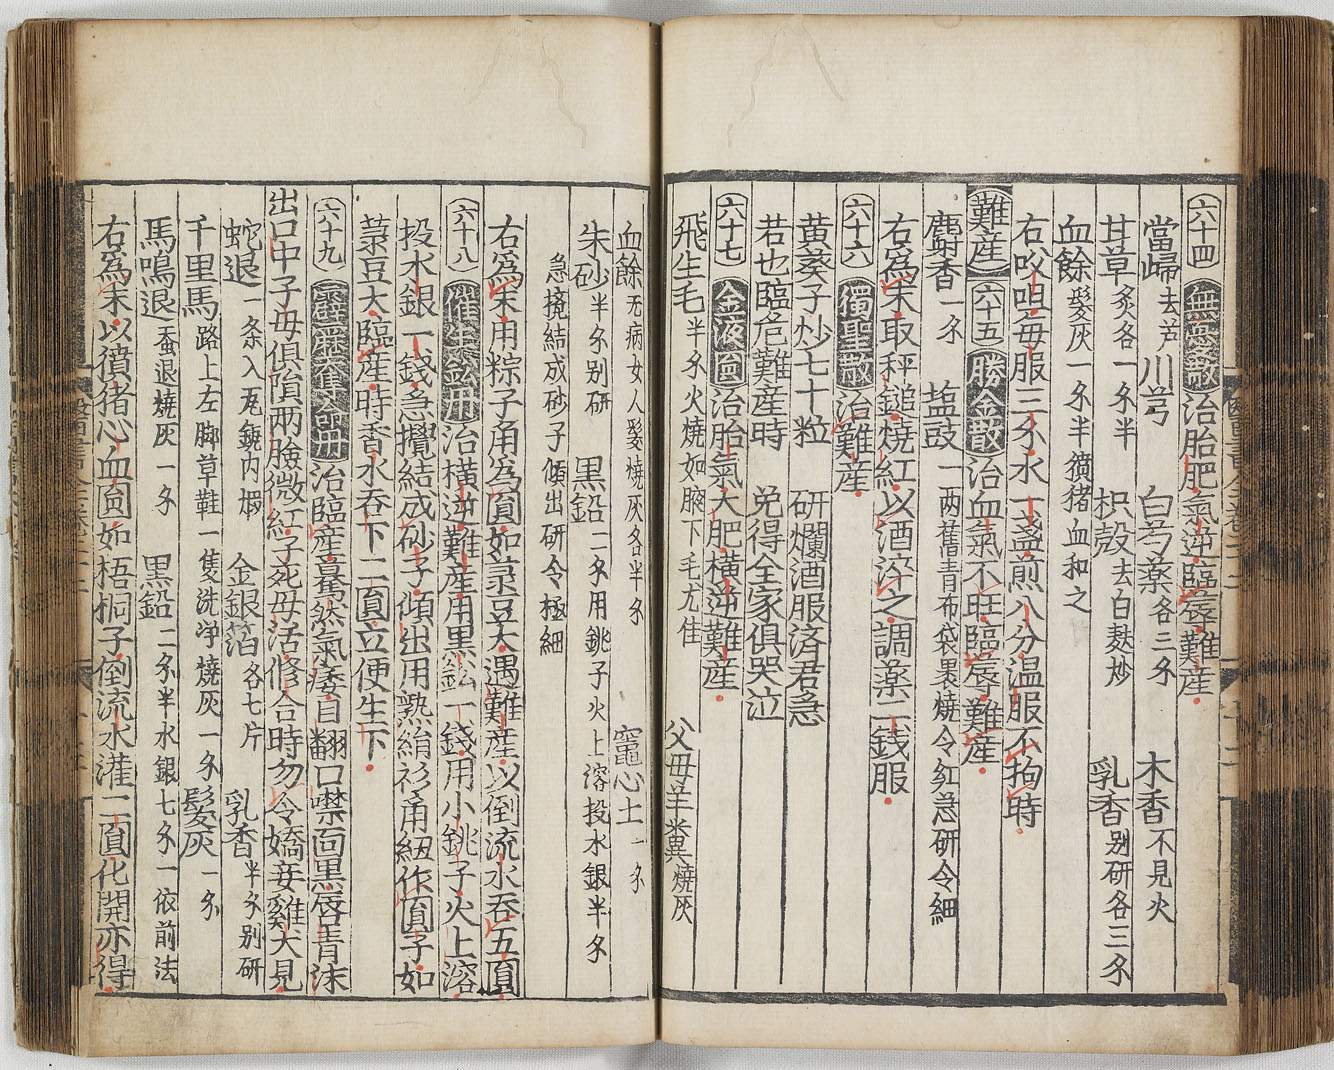 六十四 無憂散 治胎肥氣逆臨蓐難産
當歸去芦 川芎 白芍藥各三分 木香不見火
甘草炙各一分半 枳殻去白麩炒 乳香别研各三分
血餘髮灰一分半獖猪血和之
右㕮咀每服三分水一盞煎八分温服不拘時
難産 六十五 勝金散 治血氣不旺臨蓐難産
麝香一分 塩豉一两舊青布袋裹燒令紅急研令細
右爲末取秤鎚燒紅以酒淬之調薬二錢服
六十六 獨聖散 治難産
黄葵子炒七十粒 研爛酒服済君急
若也臨危難産時 免得全家俱哭泣
六十七 金液圎 治胎氣大肥横逆難産
飛生毛半分火燒如腋下毛尤佳 父母羊糞燒灰
血餘无病女人髮燒灰各半分 竈心土一分
朱砂半分别研 黒鉛二分用銚子火上溶投水銀半分
急撓結成砂子傾出研令極細
右爲末用粽子甬爲圓如菉豆大遇難産以倒流水吞五圓
六十八 催生鈆用 治横逆難産用黒鈆一錢用小銚子火上溶
投水銀一錢急攪結成砂子傾出用熟絹衫甬紐作圓子如
菉豆大臨産時香水吞下二圓立便生下
六十九 霹靂奪命丹 治臨産驀然氣痿目翻口噤面黒唇青沫
出口中子母俱隕兩臉微紅子死母活修合時勿令嬌妾雞犬見
蛇退一条入瓦鋺内煆 金銀箔各七片 乳香半分别研
千里馬路上左脚草鞋一隻洗浄燒灰一分 髮灰一分
馬鳴退蚕退燒灰一分 黒鉛二分半水銀七分一依前法
右爲末以獖猪心血圓如梧桐子倒流水灌二圓化開亦得